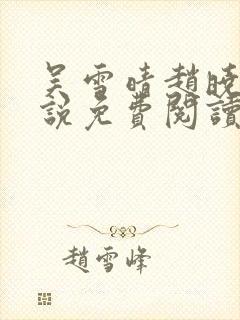 吴雪晴趙曉
說免費閱讀
趙雪峰